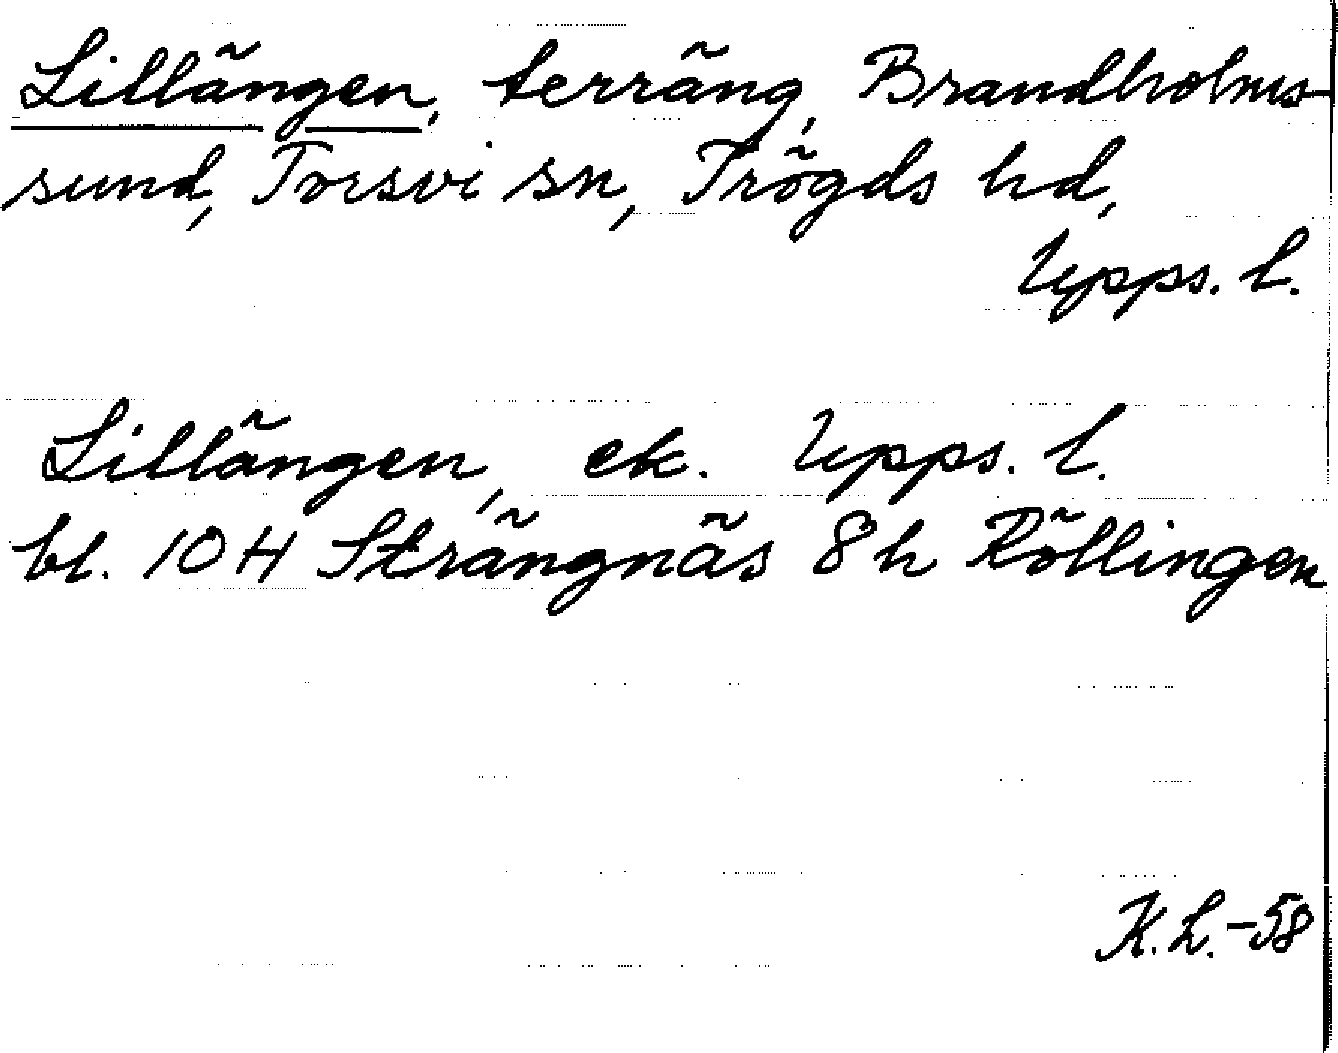 Lillängen, terräng, Brandholms-
sund, Torsvi sn, Trögds hd,
Upps. l.
Lillängen, ek. Upps. l.
bl. 10 H Strängnäs 8 h Röllingen
K. L. -58